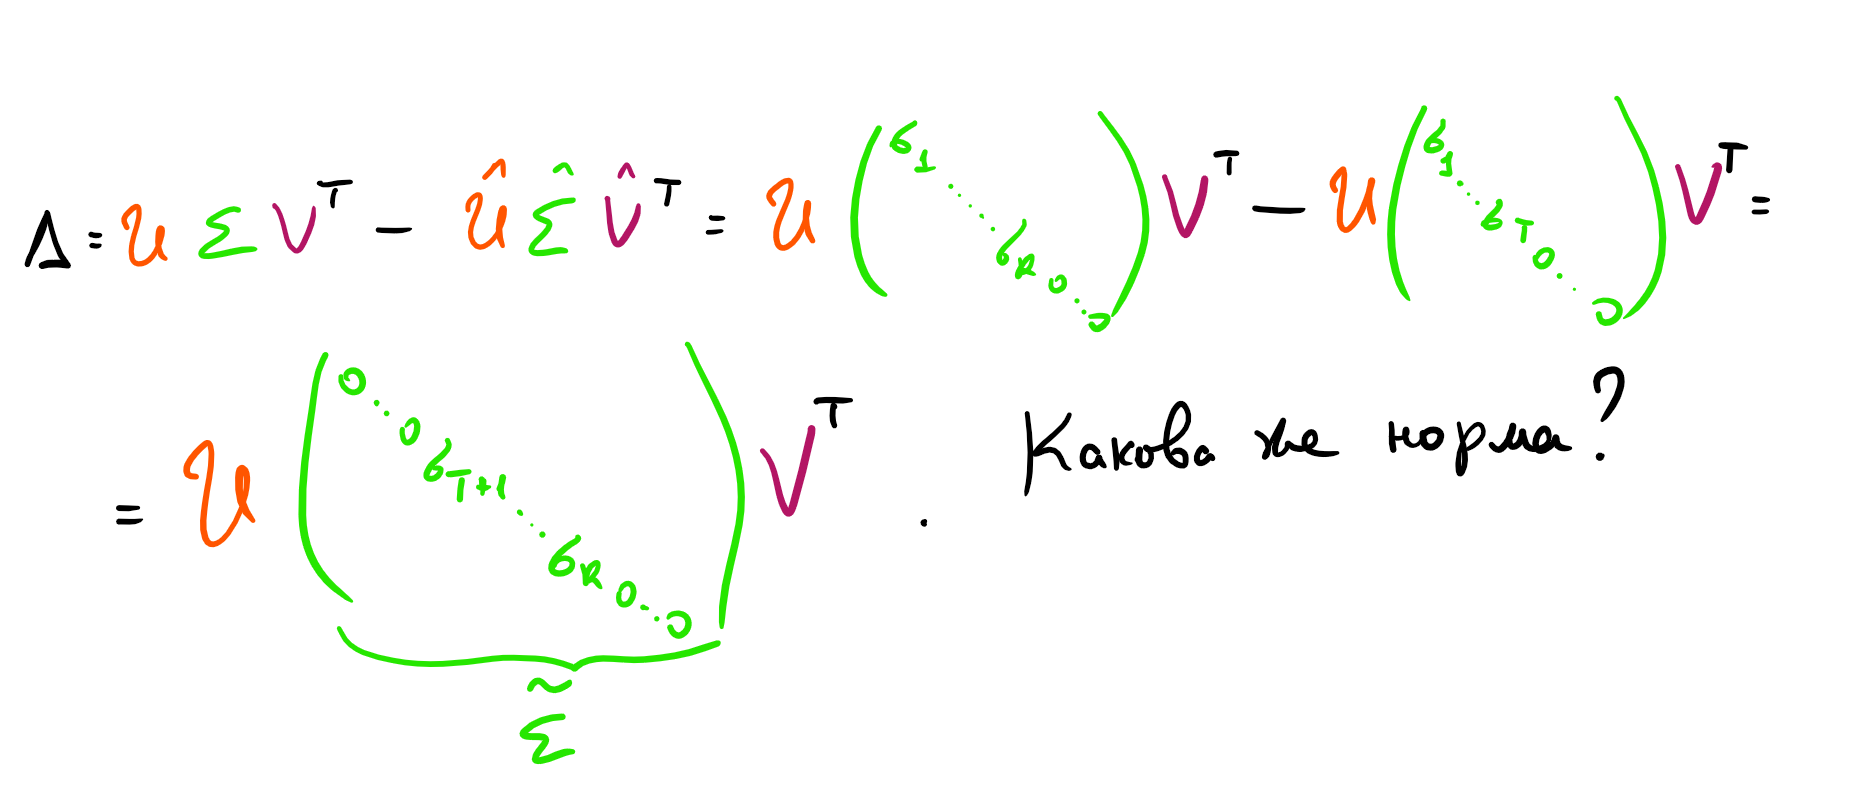 Δ = U Σ Vᵀ − Û Σ̂ V̂ᵀ = U (σ₁ ... σ_R 0 ... 0) Vᵀ − U (σ₁ ... σ_T 0 ... 0) Vᵀ =
= U (0 ... 0 σ_{T+1} ... σ_R 0 ... 0) Vᵀ . Какова же норма?
Σ̃